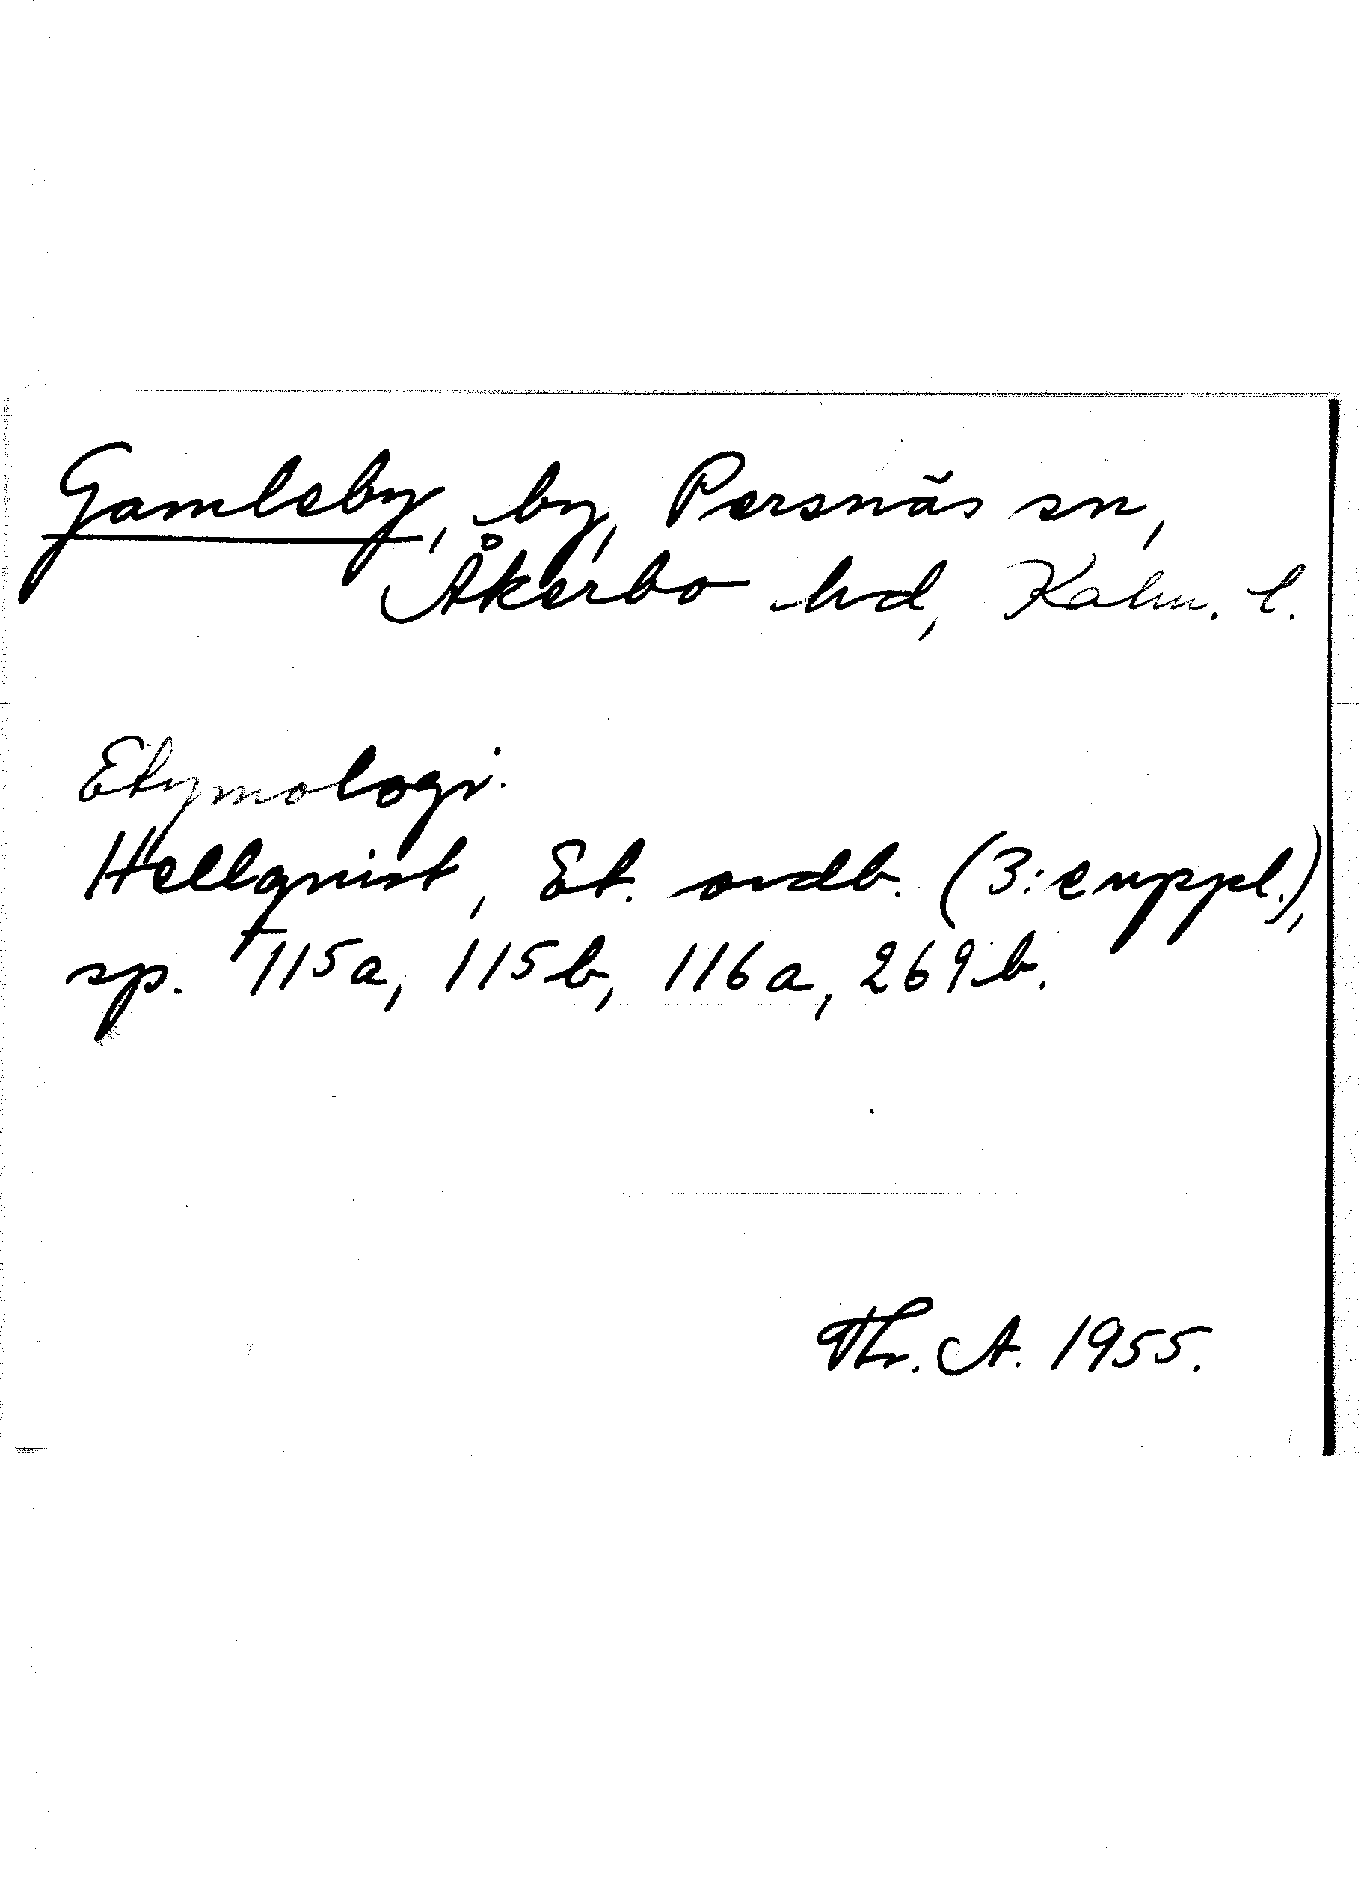 Gamleby, by, Persnäs sn,
Åkerbo hd, Kalm. l.
Etymologi.
Hellquist, Et. ordb. (3:e uppl.),
sp. 115a, 115b, 116a, 269b.
Thr. A. 1955.